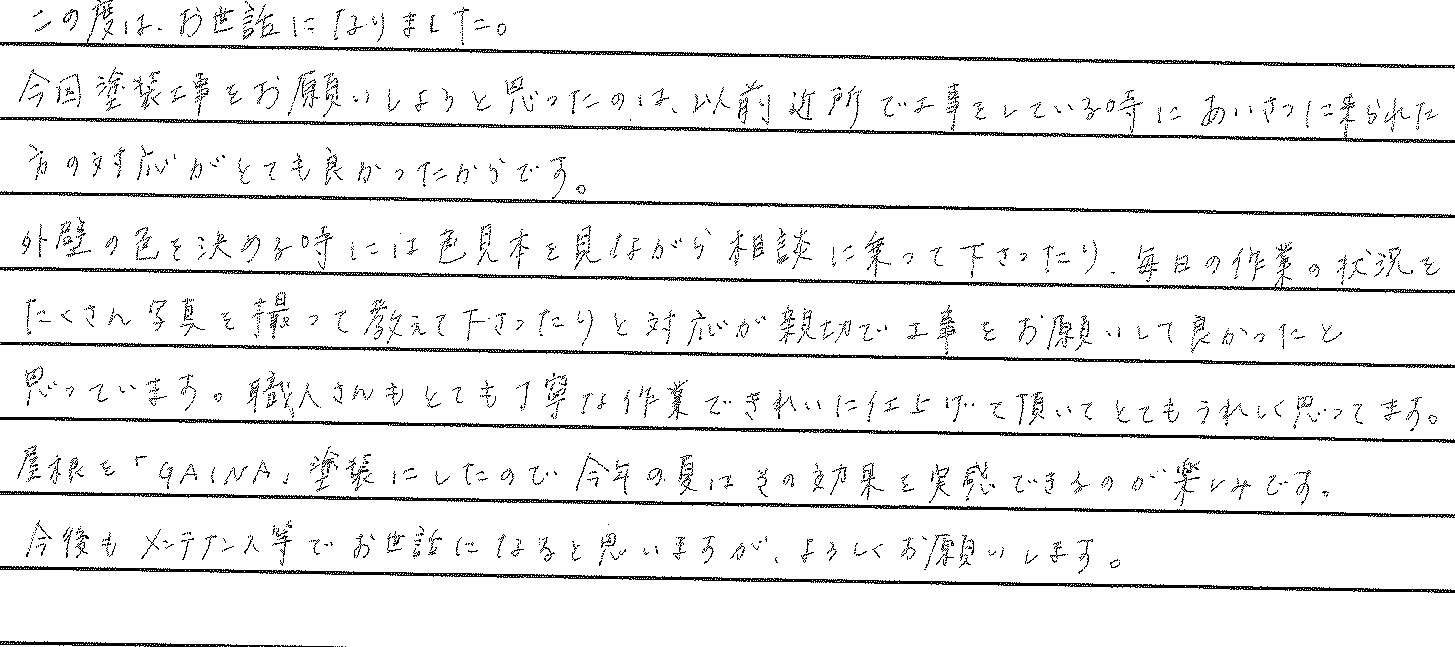 この度は、お世話になりました。
今回塗装工事をお願いしようと思ったのは、以前近所で工事をしている時にあいさつに来られた
方の対応がとても良かったからです。
外壁の色を決める時には色見本を見ながら相談に乗って下さったり、毎日の作業の状況を
たくさん写真を撮って教えて下さったりと対応が親切で工事をお願いして良かったと
思っています。職人さんもとても丁寧な作業できれいに仕上げて頂いてとてもうれしく思ってます。
屋根を「GAINA」塗装にしたので今年の夏はその効果を実感できるのが楽しみです。
今後もメンテナンス等でお世話になると思いますが、よろしくお願いします。